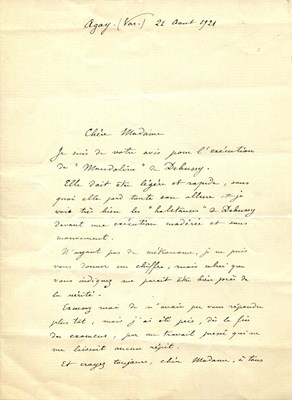 Agay. (Var.) 21 Aout 1921
Chère Madame
Je suis de votre avis pour l'exécution
de "Mandoline" de Debussy.
Elle doit être légère et rapide, sans
quoi elle perd toute son allure et je
vois très bien les de Debussy
devant une exécution modérée et sans
mouvement.
N'ayant pas de métronome, je ne puis
vous donner un chiffre, mais celui que
vous indiquez me parait être bien près de
la vérité.
Excusez moi de n'avoir pu vous répondre
plus tôt, mais j'ai été pris, dès la fin
des examens, par un travail pressé qui ne
me laissait aucun répit.
Et croyez toujours, chère Madame, à tous